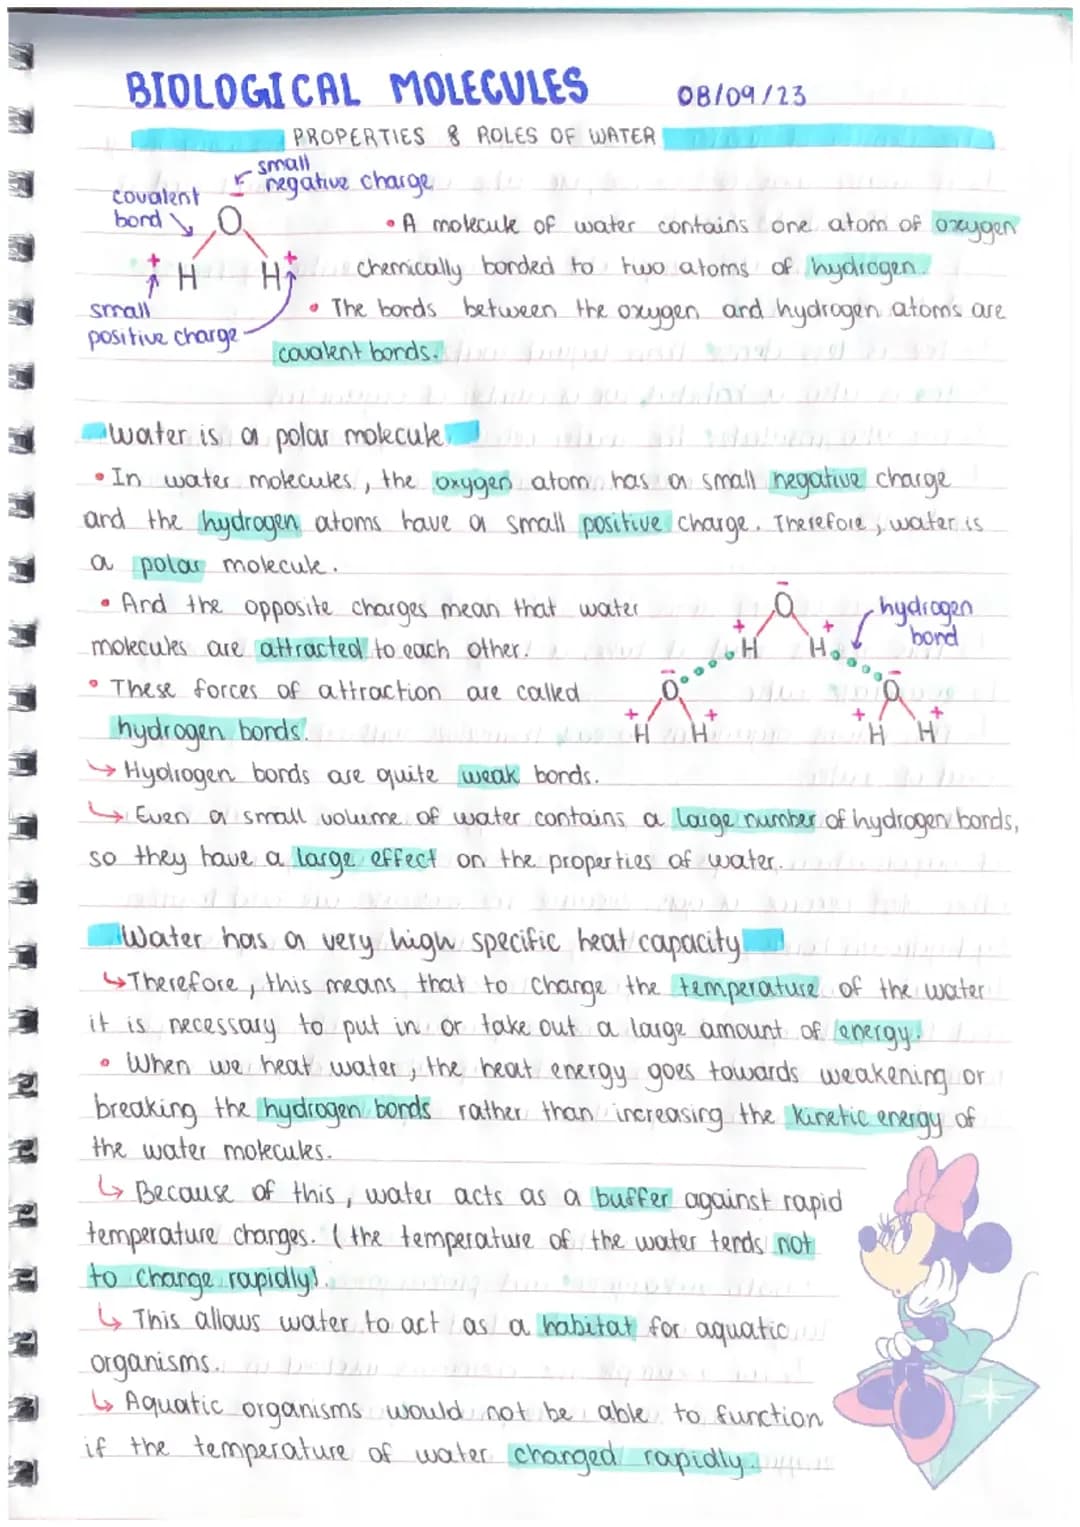 BIOLOGICAL MOLECULES 08/09/23
PROPERTIES & ROLES OF WATER
small
negative charge
covalent
bond
O
H H
small
positive charge
• A molecule of water contains one atom of oxygen
chemically bonded to two atoms of hydrogen.
• The bonds between the oxygen and hydrogen atoms are
covalent bonds.
Water is a polar molecule
• In water molecules, the oxygen atom has a small negative charge
and the hydrogen atoms have a small positive charge. Therefore, water is
a polar molecule.
• And the opposite charges mean that water
molecules are attracted to each other.
• These forces of attraction are called
hydrogen bonds.
- O
+ H H +
hydrogen
bond
- O - O
+ H H + + H H +
↳ Hydrogen bonds are quite weak bonds.
↳ Even a small volume of water contains a large number of hydrogen bonds,
so they have a large effect on the properties of water.
Water has a very high specific heat capacity
↳ Therefore, this means that to change the temperature of the water
it is necessary to put in or take out a large amount of energy.
• When we heat water, the heat energy goes towards weakening or
breaking the hydrogen bonds rather than increasing the kinetic energy of
the water molecules.
↳ Because of this, water acts as a buffer against rapid
temperature changes. (the temperature of the water tends not
to change rapidly).
↳ This allows water to act as a habitat for aquatic
organisms.
↳ Aquatic organisms would not be able to function
if the temperature of water changed rapidly.